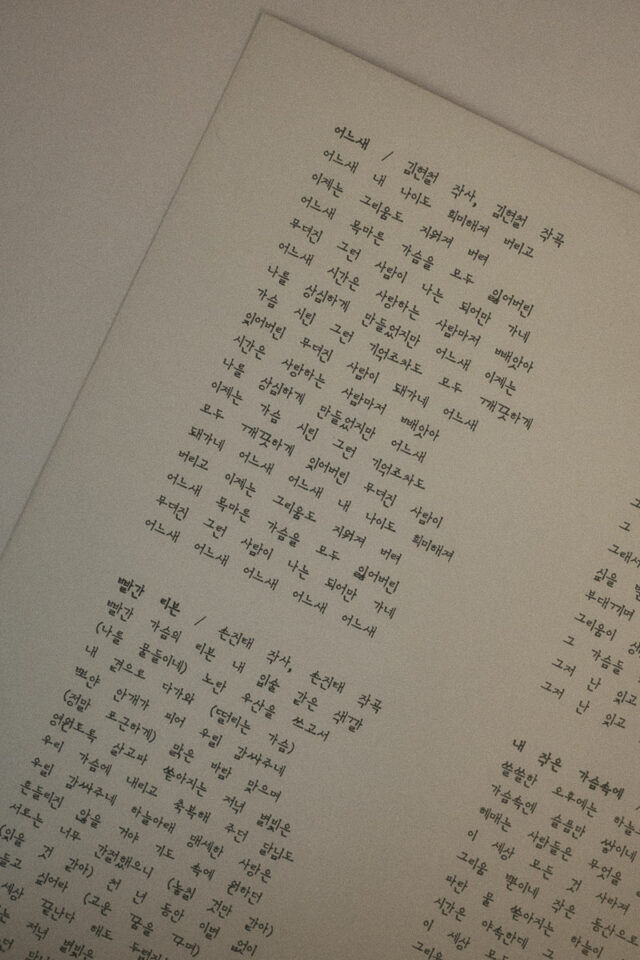 어느새 / 김현철 작사, 김현철 작곡
어느새 내 나이도 희미해져 버리고
이제는 그리움도 지워져 버려
어느새 목마른 가슴을 모두 잃어버린
무뎌진 그런 사람이 나는 되어만 가네
어느새 시간은 사랑하는 사람마저 빼앗아
나를 상심하게 만들었지만 어느새 이제는
가슴 시린 그런 기억조차도 모두 깨끗하게
잊어버린 무뎌진 사람이 돼가네 어느새
시간은 사랑하는 사람마저 빼앗아
나를 상심하게 만들었지만 어느새
이제는 가슴 시린 그런 기억조차도
모두 깨끗하게 잊어버린 무뎌진 사람이
돼가네 어느새 어느새 내 나이도 희미해져
버리고 이제는 그리움도 지워져 버려
어느새 목마른 가슴을 모두 잃어버린
무뎌진 그런 사람이 나는 되어만 가네
어느새 어느새 어느새 어느새 어느새
빨간 리본 / 손진태 작사, 손진태 작곡
빨간 가슴의 리본 내 입술 같은 색깔
(나를 물들이네) 노란 우산을 쓰고서
내 곁으로 다가와 (떨리는 가슴)
뽀얀 안개가 피어 우릴 감싸주네
(정말 포근하게) 맑은 바람 맞으며
영원토록 살고파 쏟아지는 저녁 별빛은
우리 가슴에 내리고 축복해 주던 달님도
우릴 감싸주네 하늘아래 맹세한 사랑은
흔들리지 않을 거야 기도 속에 원하던
서로는 너무 간절했으니 (놓칠 것만 같아)
(있을 것 같아) 천 년 동안 이별 없이
싶어라 (고운 꿈을 꾸며)
세상 끝난다 해도
저녁 별빛은
그
그
그래서
싫을
부대끼며
그리움이
그 가슴들
그저 난 잊고
그저 난 잊고
내 작은 가슴속에 /
쓸쓸한 오후에는 하늘
가슴속엔 슬픔만 쌓이네
헤매는 사람들은 무엇을
이 세상 모든 것 사라져
그리움 뿐이네 작은 동산으로
파란 물 쏟아지는 하늘이
시간은 야속한데 그
이 세상 모든
그리움